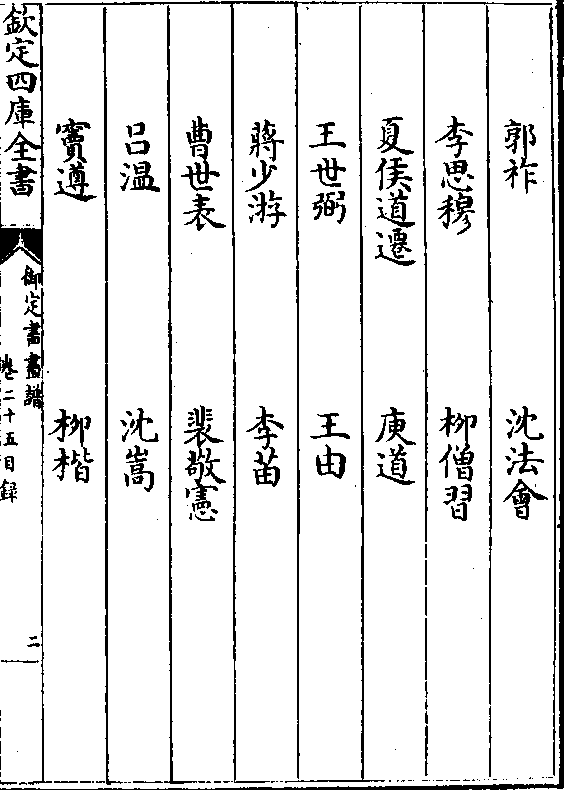 郭祚 沈法會
李思穆 柳僧習
夏侯道遷 庾道
王世弼 王由
蔣少游 李苗
曹世表 裴敬憲
吕温 沈嵩
竇遵 柳楷
欽定四庫全書 御定書畫譜 卷二十五目録 二